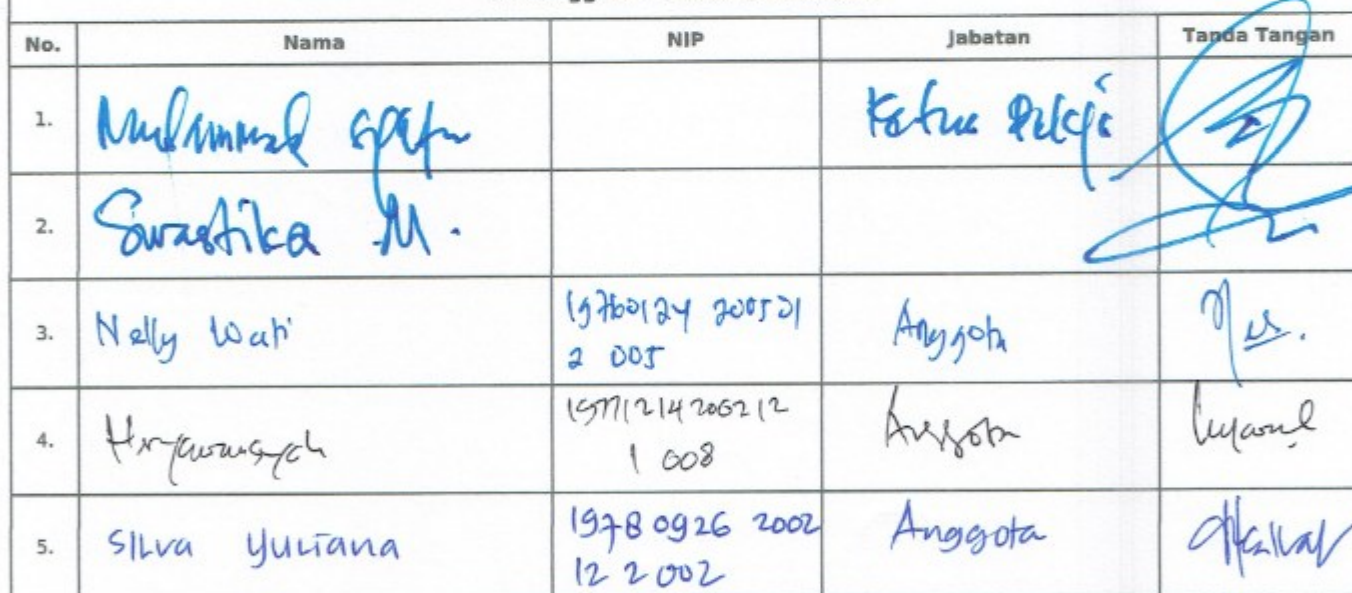 No. Nama NIP Jabatan Tanda Tangan
1. Muhammad Ketua Pokja
2. Swastika M.
3. Nelly Wati 19760124 200501 Anggota
2 005
4. Heryawansyah 19771214200212 Anggota
1 008
5. Silva Yuliana 19780926 2002 Anggota
12 2 002